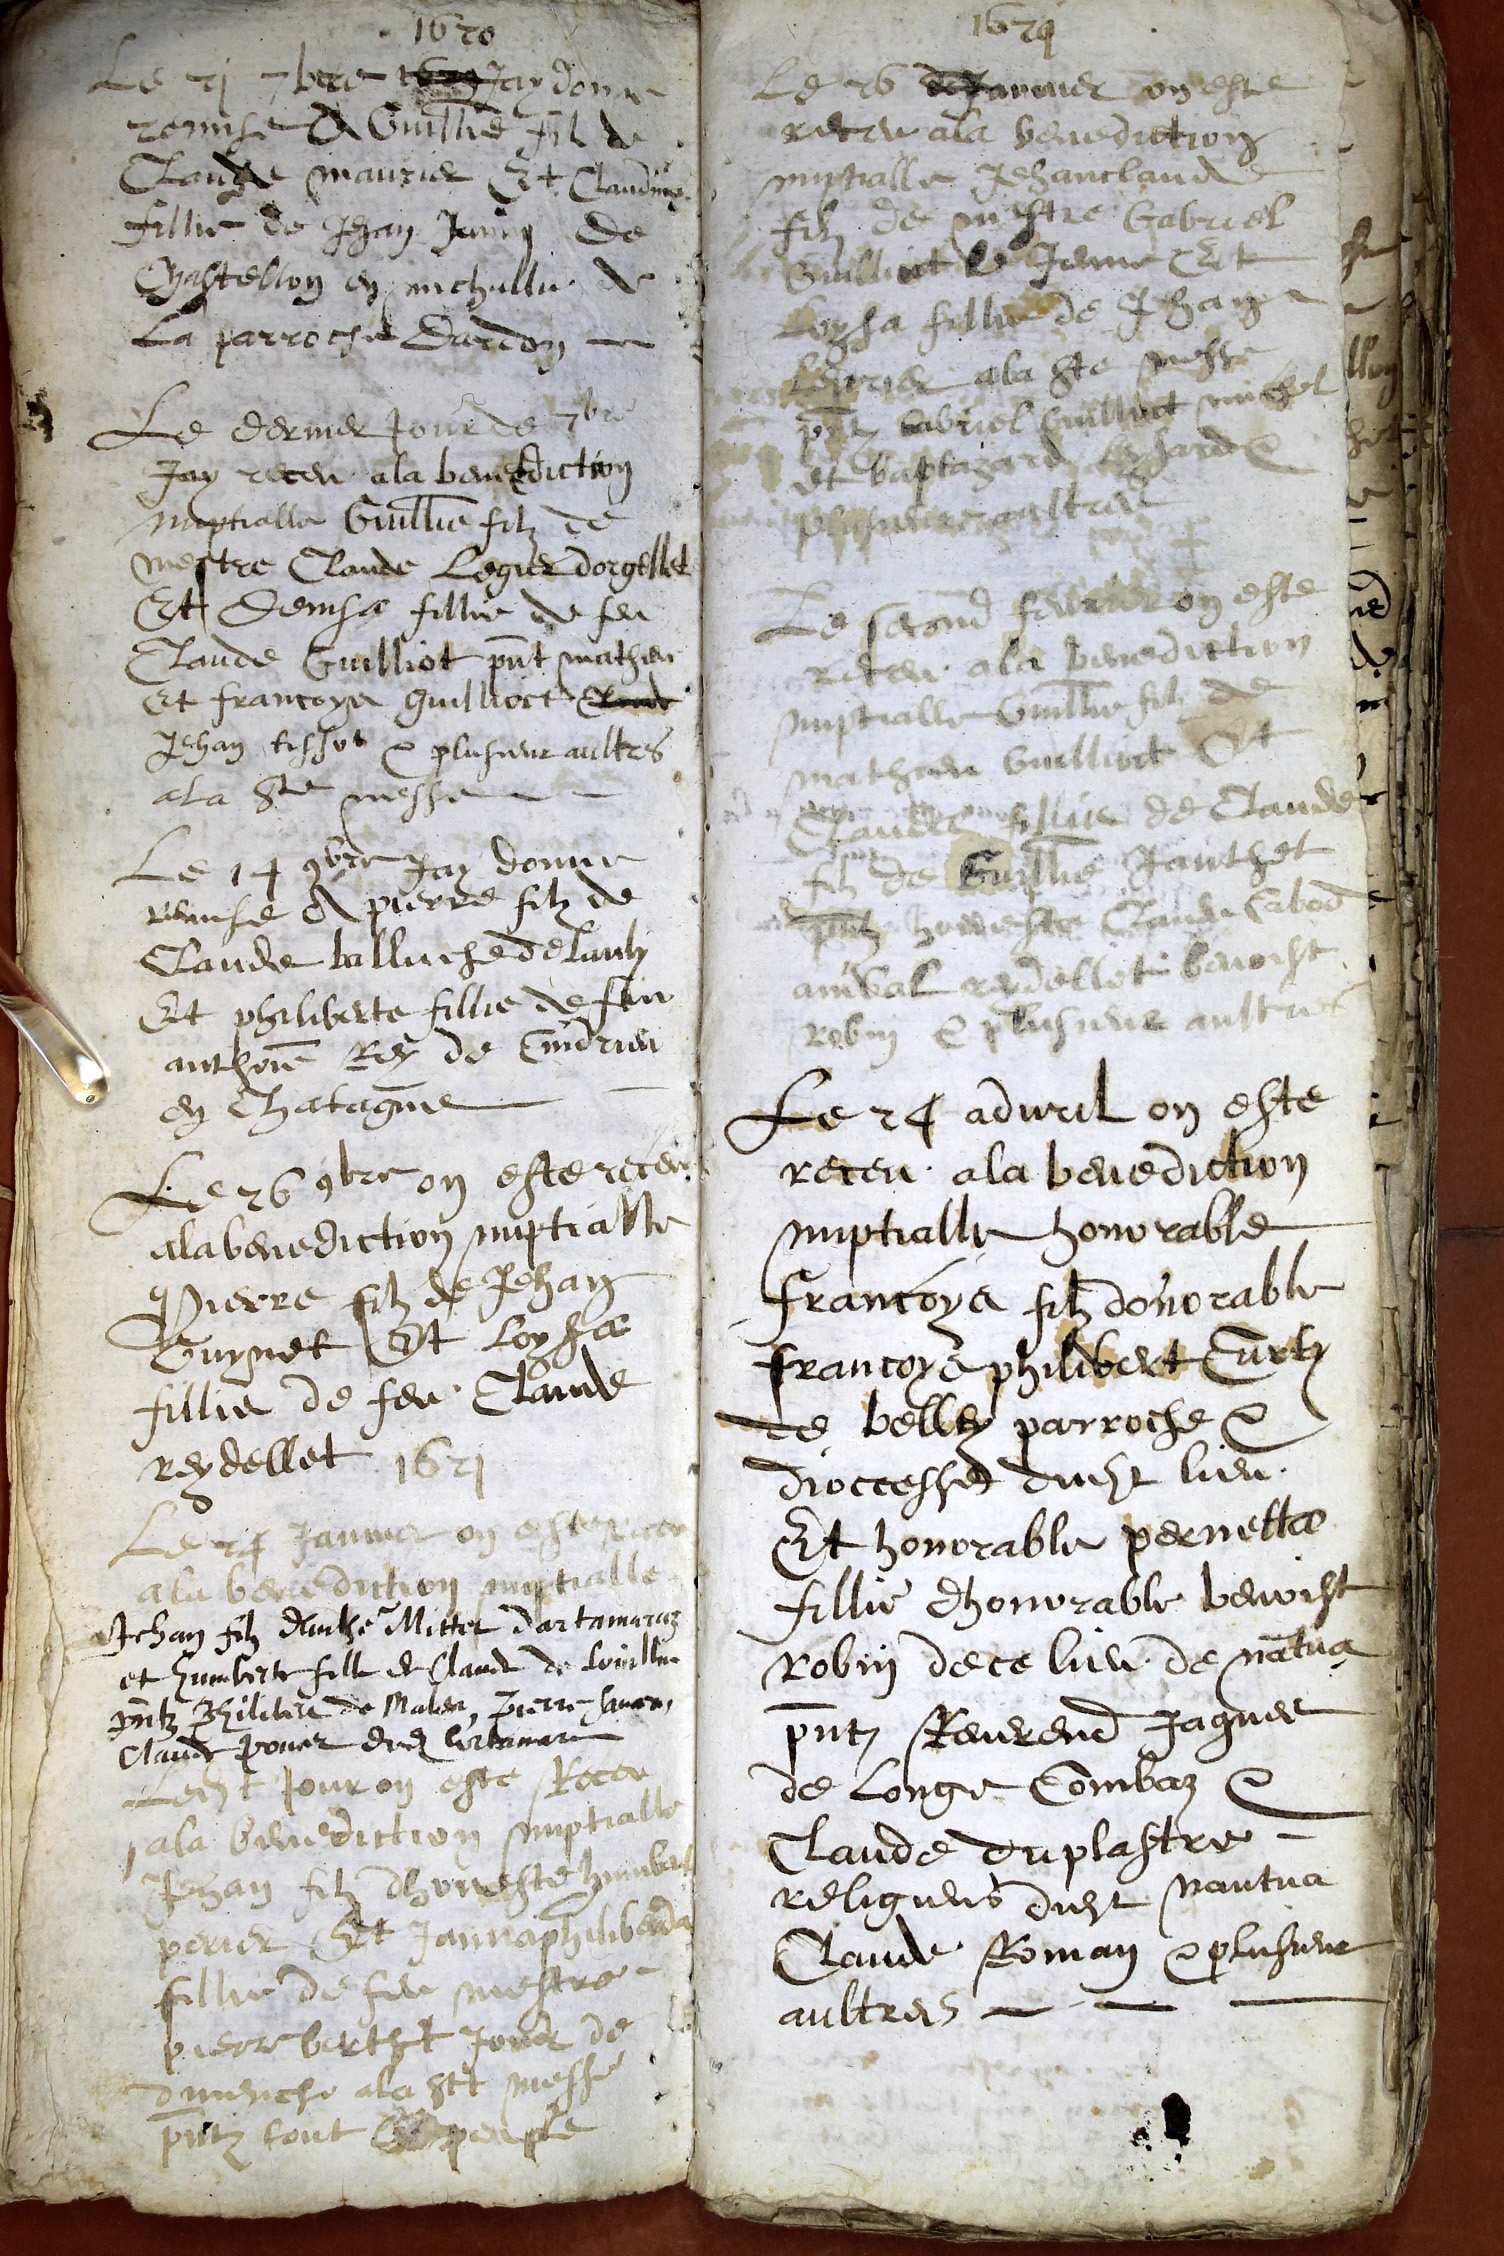 1620
Le 21 7bre Jay donne
remise A Guillie fil de
Claude maurier Et Claudine
fillie de Jehan Janin de
Chastellon en michallie de
La parroche Dardon
Le dernier Jour de 7bre
Jay receu ala benediction
nuptialle Guillie filz de
mestre Claude Legier dorgellet
Et Denisa fillie de feu
Claude Guilliot pnt mathieu
Et francoys guilliot
Jehan tissot & plusieur aultres
ala Ste messe
Le 14 9bre Jay donne
remise A pierre filz de
Claude balluche de
Et philiberte fillie de feu
anthoie Rey de Cindrieu
en Chatagne
Le 26 9bre on este receu
ala benediction nuptialle
Pierre filz de Jehan
Guynet Et Loysa
fillie de feu Claude
reydellet 1621
Le 24 Janvier on este receu
ala benediction nuptialle
Jehan filz Mitter
et humberte fille de Claude de
pntz Philibert de Pierre
Claude
Ledit Jour on este Receu
ala benediction nuptialle
Jehan filz dhoneste humbert
perier Et Jannaphiliberda
fillie de feu mestre
pierre berthet Jour de
dimenche ala Ste messe
pntz tout peuple
1621
Le 26 Janvier on este
receu ala benediction
nuptialle Jehanclaude
filz de mestre Gabriel
Guilliot le Jeune Et
Loysa fillie de Jehan
ala Ste messe
pntz Gabriel Guilliot michel
et
plusieurs aultres
Le second febvrier on este
receu ala benediction
nuptialle Guillie filz de
mathieu Guilliot Et
Claude fillie de Claude
filz de Guillie Janthet
pntz honeste Claude Cabod
anibal reydellet benoist
robin & plusieur aultres
Le 24 adwril on este
receu ala benediction
nuptialle honorable
francoys filz donorable
francoys philibert Curtz
de belley parroche &
dioccesse dudit lieu
Et honorable pernetta
fillie dhonorable benoist
robin de ce lieu de nantua
pntz Reverend Jaques
de Longe Combaz &
Claude duplastre
religieus dudit nantua
Claude Roman & plusieur
aultres